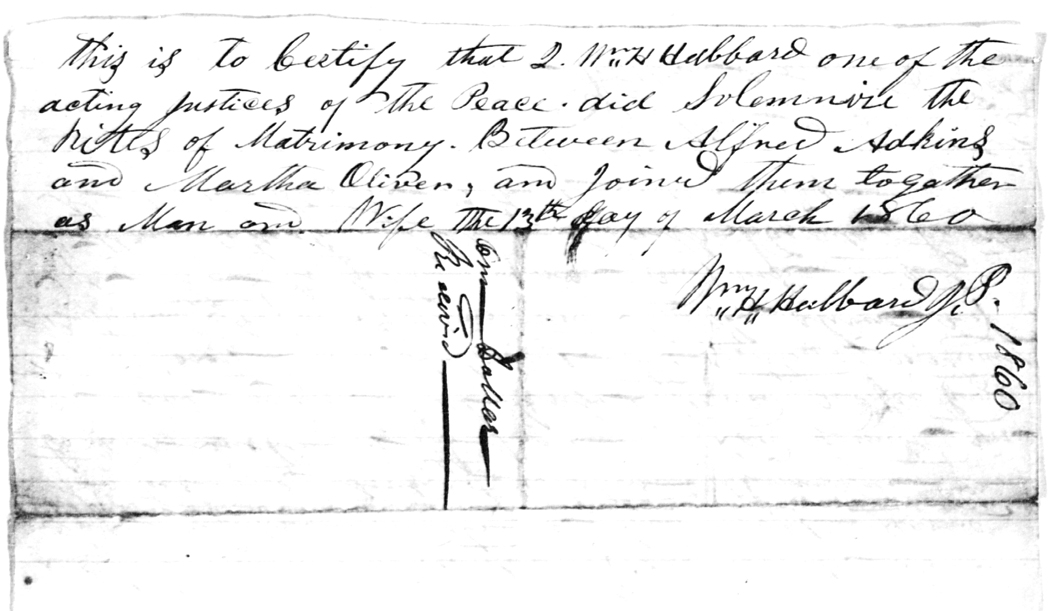 This is to Certify that I. Wm H Hubbard one of the
acting Justices of the Peace. did Solemnize the
Rites of Matrimony. Between Alfred Adkins
and Martha Oliver, and Joined them togather
as Man and Wife the 13th day of March 1860
Wm H Hubbard J.P.
1860
Dollar
Received